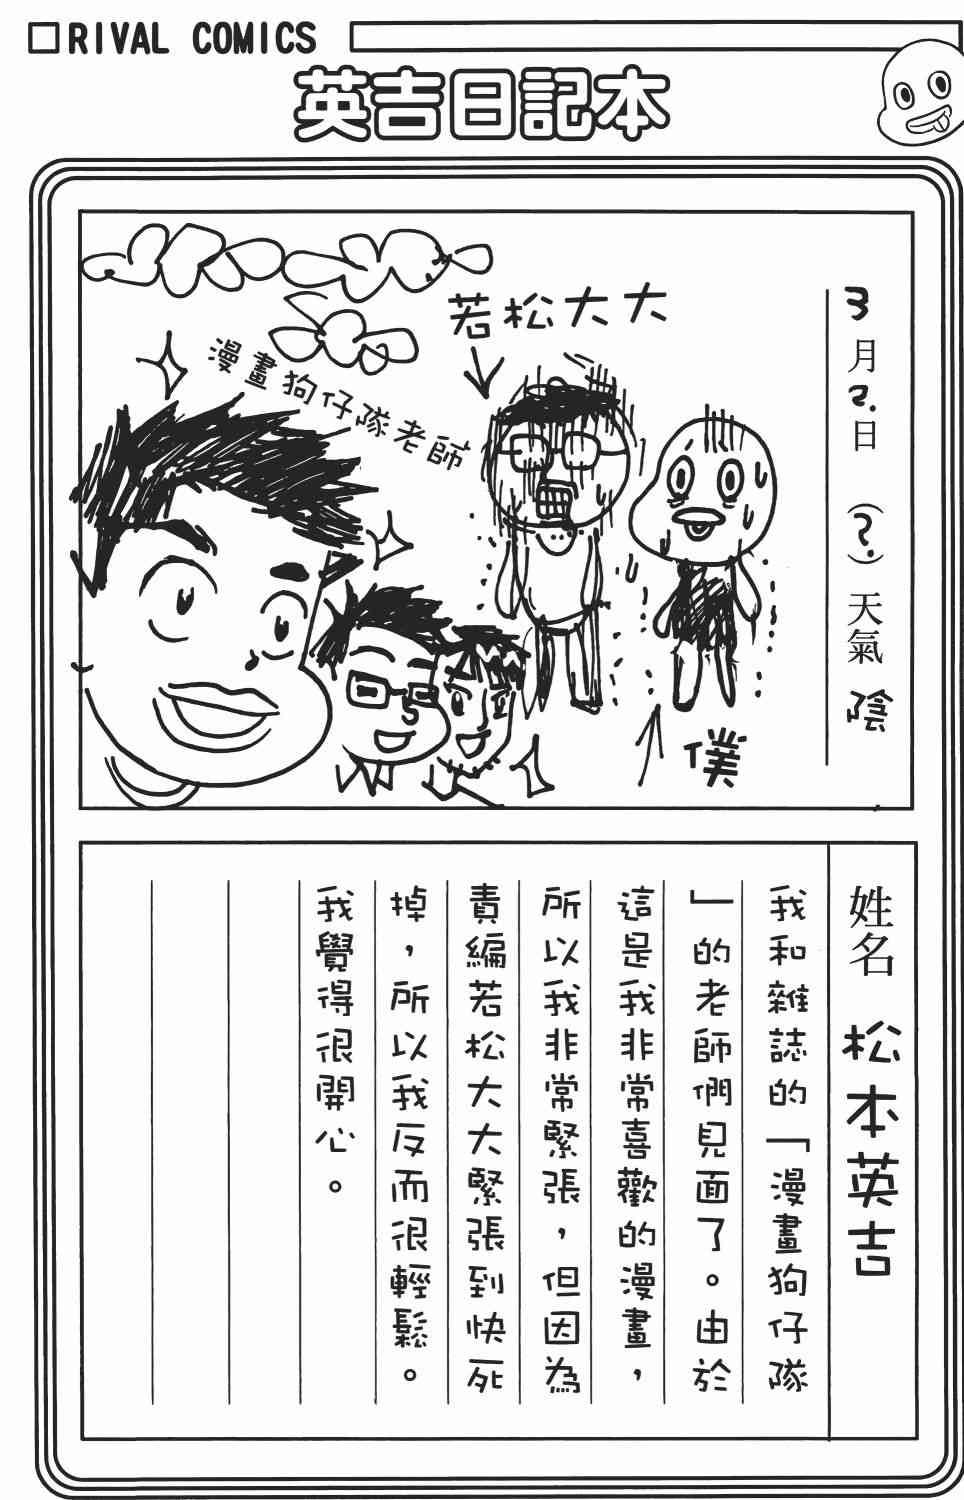 □RIVAL COMICS
英吉日記本
3月2.日(?.)天氣 陰
若松大大
漫畫狗仔隊老師
僕
姓名 松本英吉
我和雜誌的「漫畫狗仔隊
」的老師們見面了。由於
這是我非常喜歡的漫畫,
所以我非常緊張,但因為
責編若松大大緊張到快死
掉,所以我反而很輕鬆。
我覺得很開心。